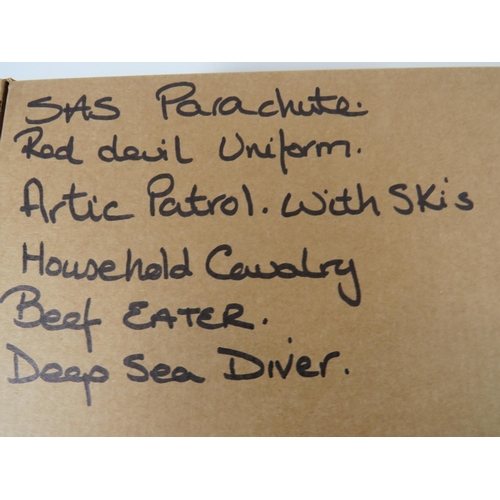 SAS Parachute.
Red devil Uniform.
Artic Patrol. With SKis
Household Cavalry
Beef EATER.
Deep Sea Diver.